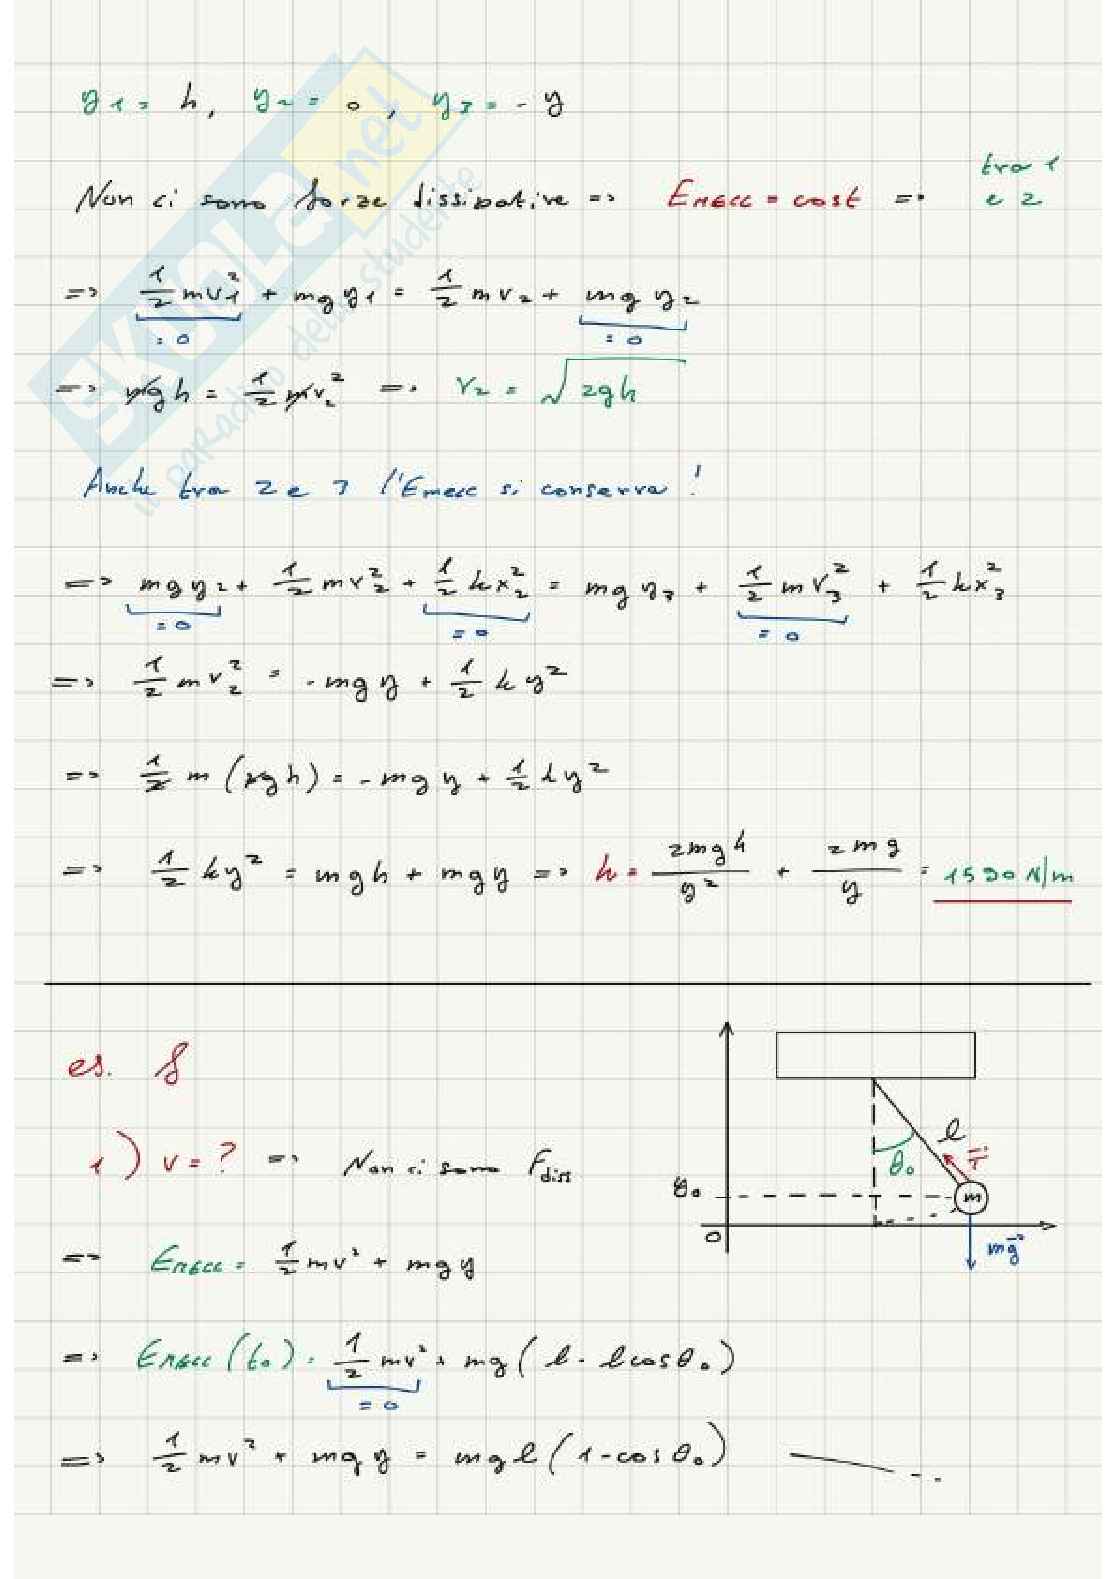 y1 = h, y2 = 0, y3 = - y
Non ci sono forze dissipative => EMECC = cost => tra 1 e 2
=> 1/2 mv1² + mg y1 = 1/2 m v2 + mg y2
= 0 = 0
=> mgh = 1/2 mv2² => v2 = √2gh
Anche tra 2 e 3 l'Emecc si conserva!
=> mg y2 + 1/2 mv2² + 1/2 kx2² = mg y3 + 1/2 mv3² + 1/2 kx3²
= 0 = 0 = 0
=> 1/2 mv2² = - mg y + 1/2 k y²
=> 1/2 m (2gh) = - mg y + 1/2 k y²
=> 1/2 ky² = mgh + mgy => k = 2mgh/y² + 2mg/y = 1590 N/m
es. 8
1) v = ? => Non ci sono Fdiss
=> EMECC = 1/2 mv² + mg y
=> EMECC (t0) = 1/2 mv² + mg (l - l cosθ0)
= 0
=> 1/2 mv² + mg y = mg l (1 - cosθ0)
l
θ0
T
y0
m
0
mg
SKUOLA.net
il paradiso dello studente